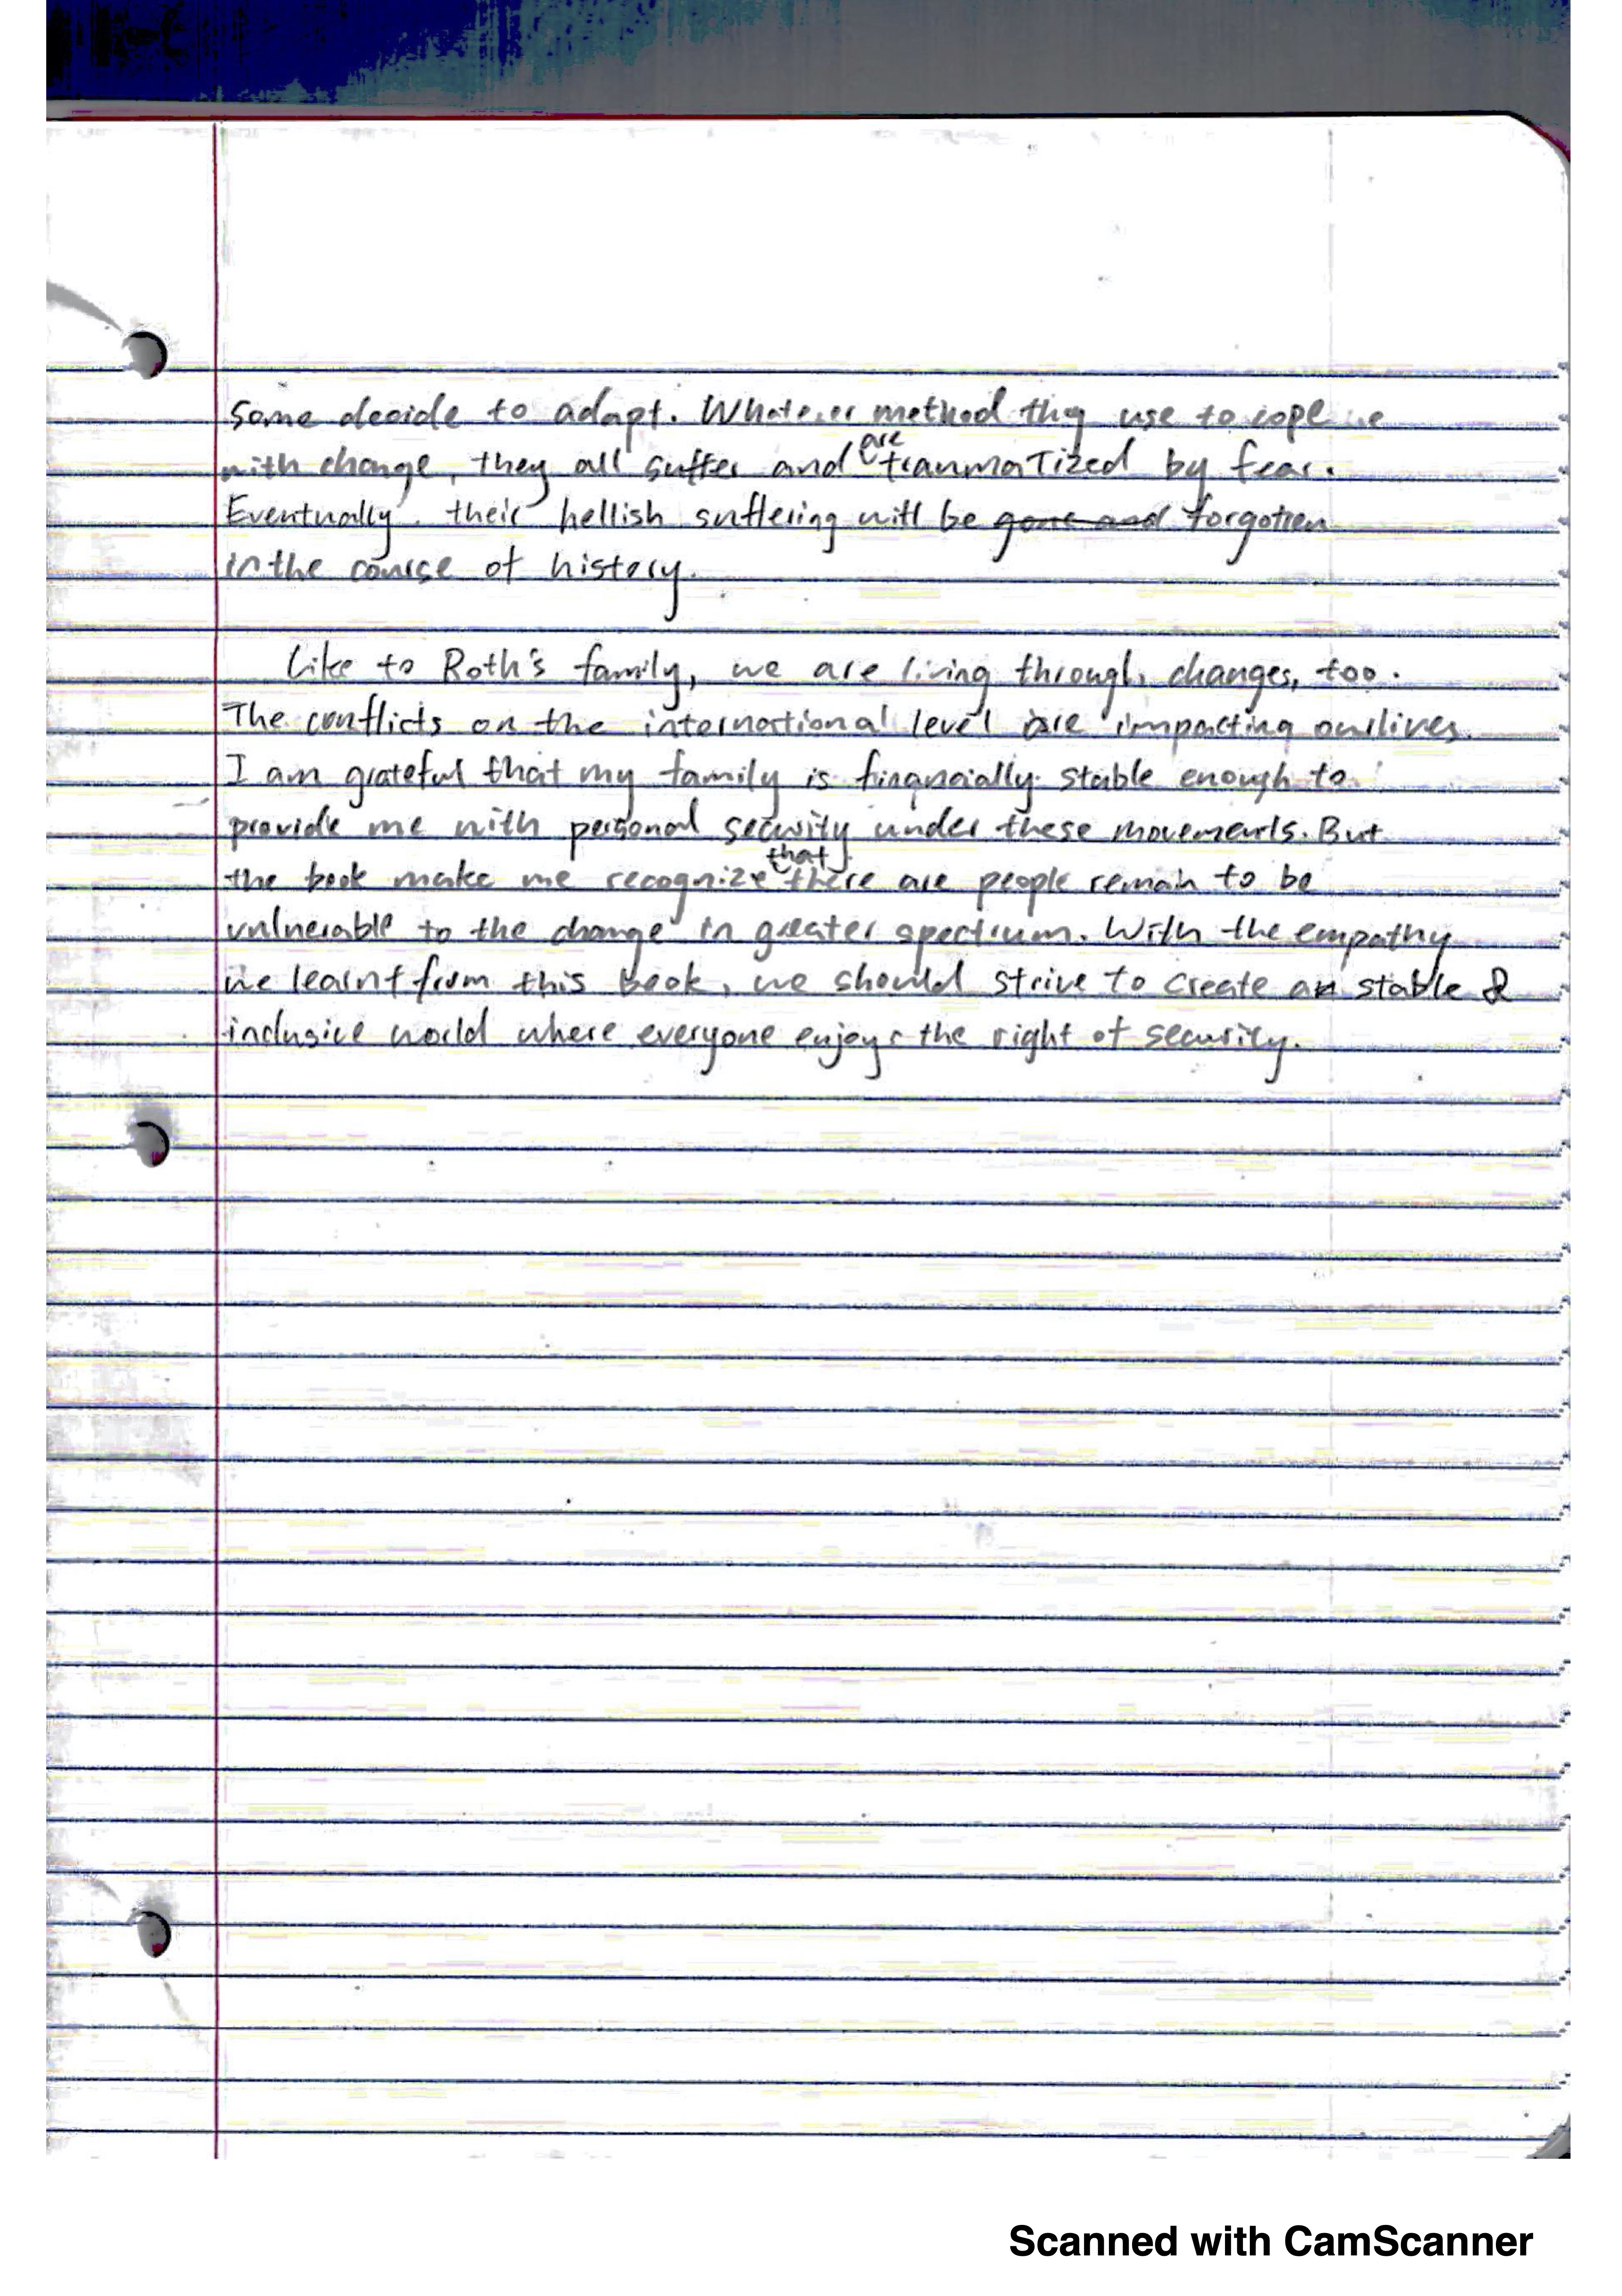 some decide to adapt. Whatever method they use to cope
with change, they all suffer and are traumatized by fear.
Eventually. their hellish suffering will be gone and forgotten
in the course of history.
Like to Roth's family, we are living through changes, too.
The conflicts on the international level are impacting our lives.
I am grateful that my family is financially stable enough to
provide me with personal security under these movements. But
the book make me recognize that there are people remain to be
vulnerable to the change in greater spectrum. With the empathy
we learnt from this book, we should strive to create a stable &
inclusive world where everyone enjoys the right of security.
Scanned with CamScanner